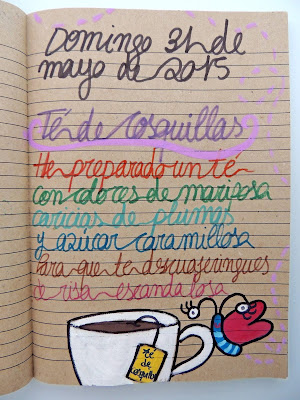 Domingo 31 de
mayo de 2015
Té de cosquillas
He preparado un té
con olores de mariposa
caricias de plumas
y azúcar caramillosa
Para que te descuajeringues
de risa escandalosa
té
de
cosquillas